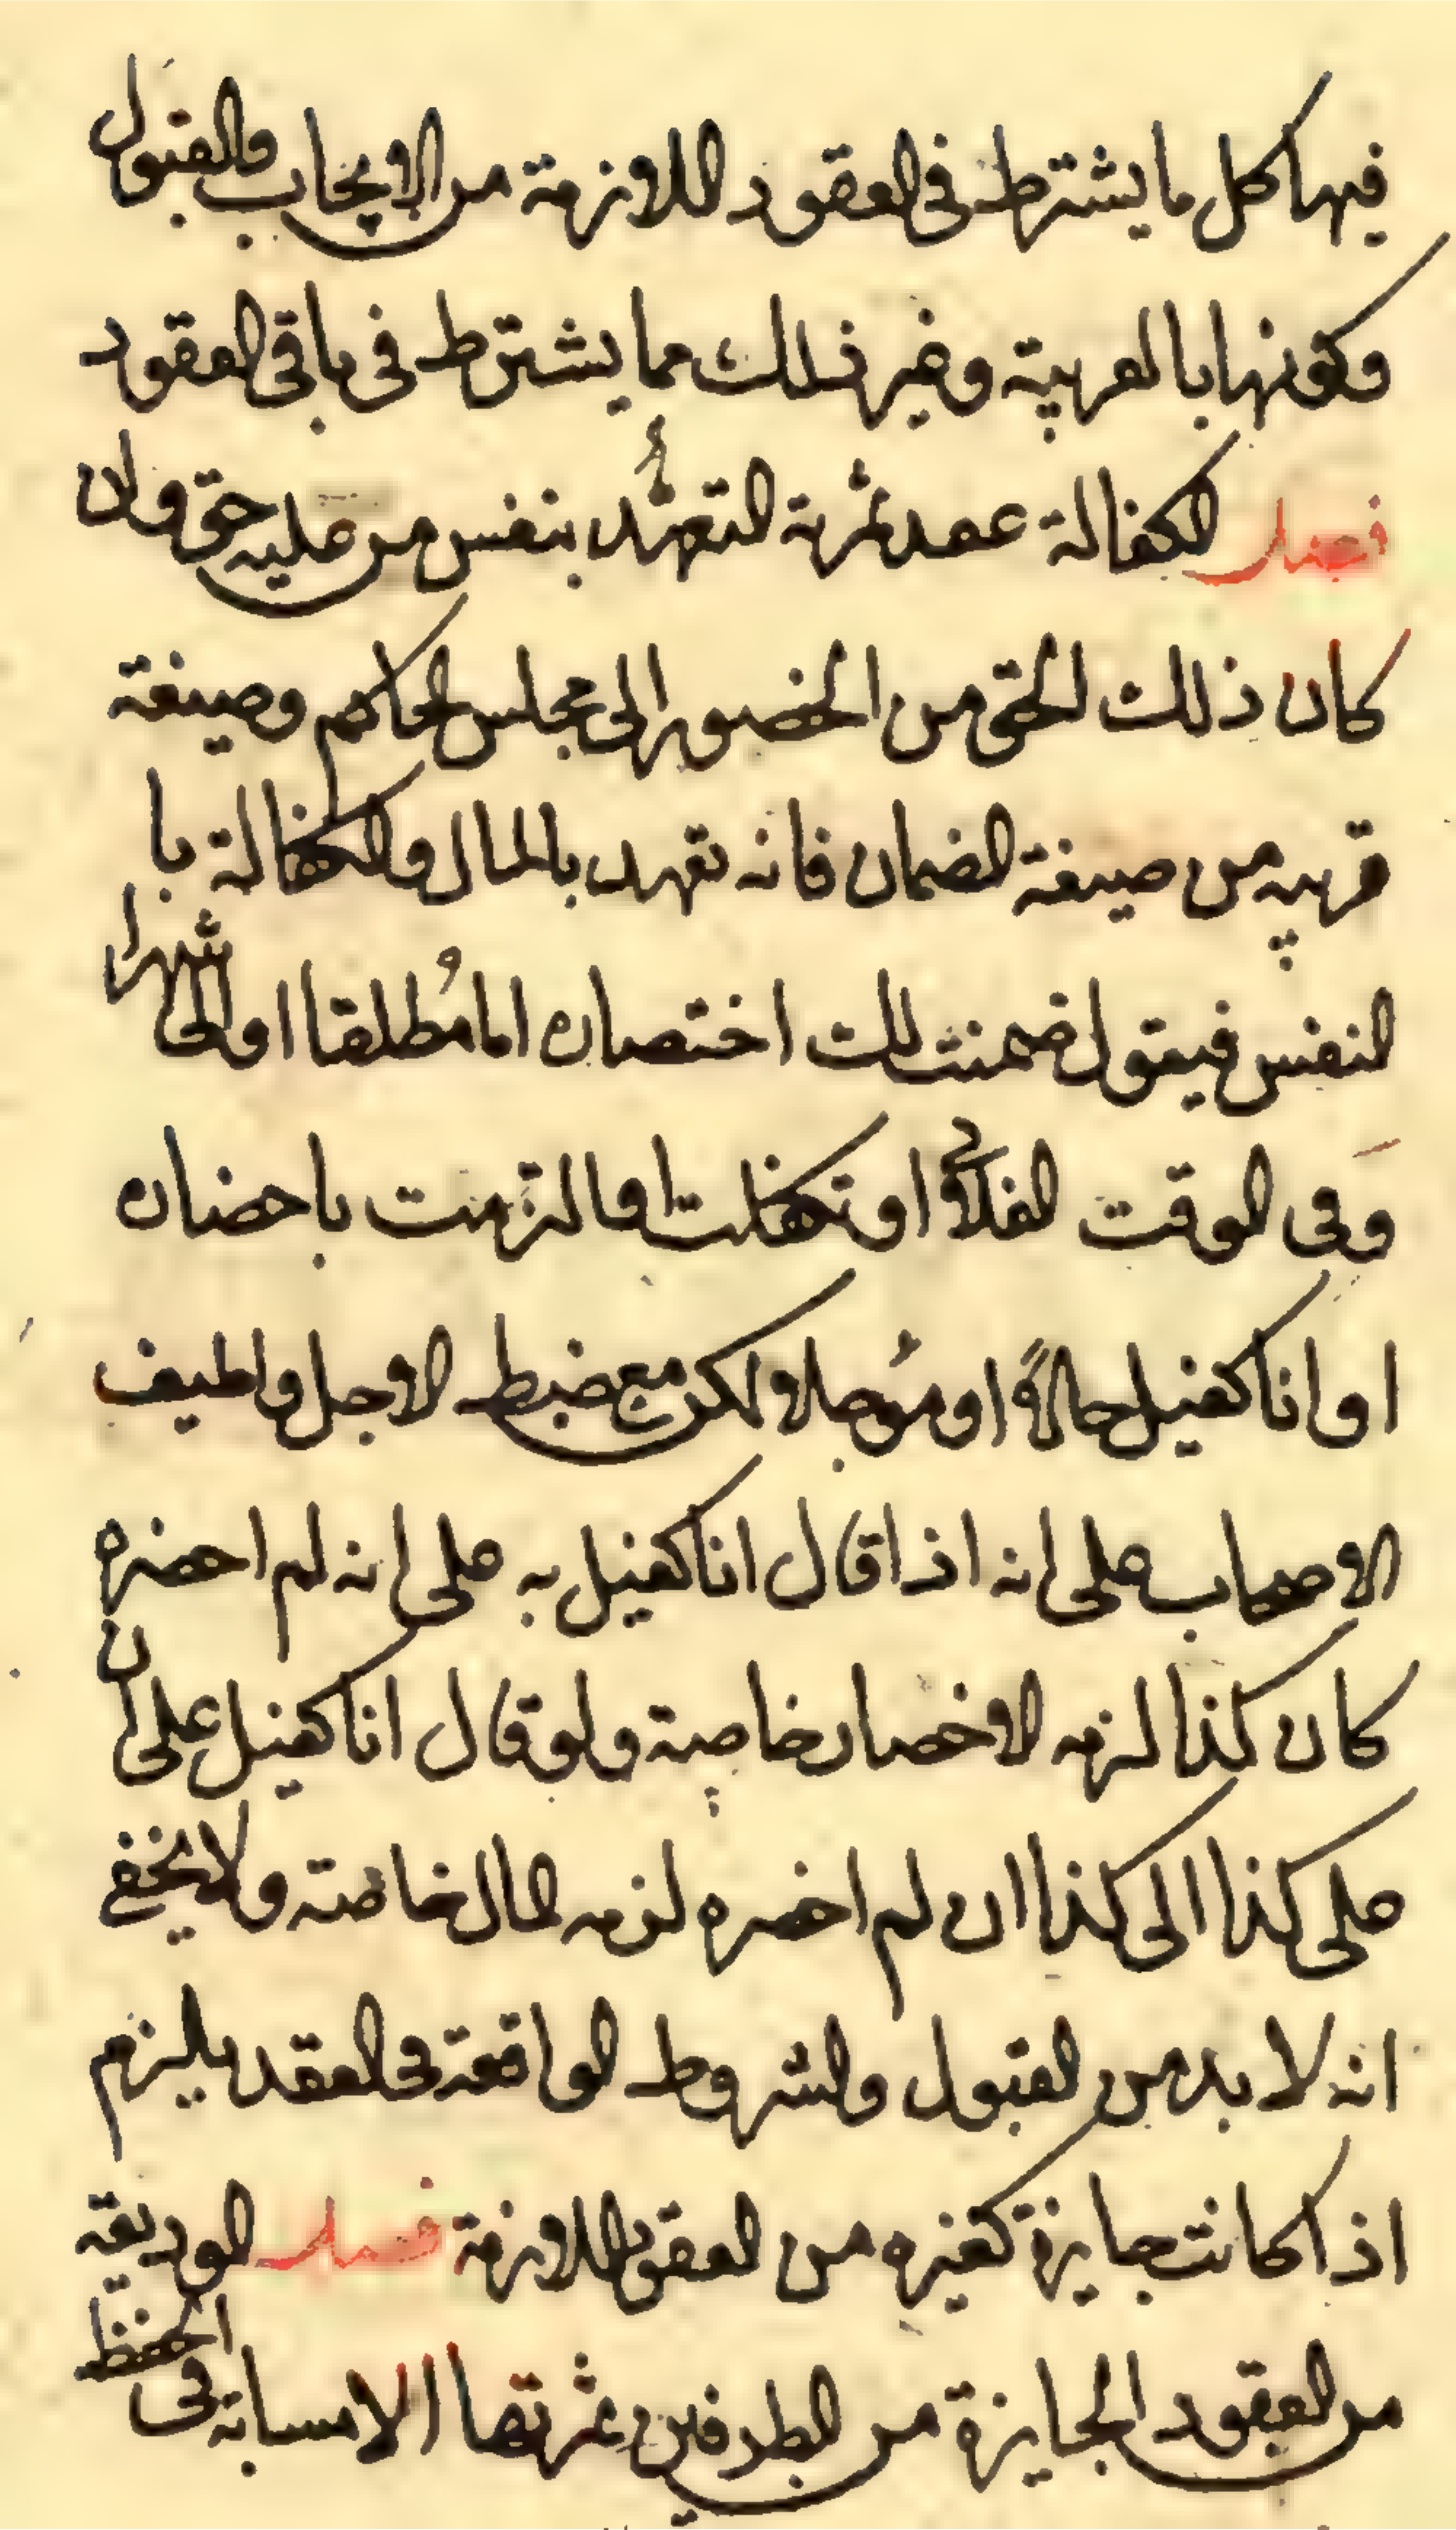 فيها كل ما يشترط فى العقود اللازمة من الايجاب والقبول
وكونها بالعربية وغير ذلك مما يشترط فى باقى العقود
فصل الكفالة عقد ثمرته التعهد بنفس من عليه حق وان
كان ذلك الحق من الحضور الى مجلس الحاكم وصيغة
قريبه من صيغة الضمان فانه تعهد بالمال والكفالة با
لنفس فيقول ضمنت لك احتصاره اما مطلقا او الى شهرا
وفى الوقت الفلانى او تكفلت او التزمت باحضاره
او انا كفيل حالاً او مُوجلا ولكن مع ضبط الاجل واطيف
الاصحاب على انه اذا قال انا كفيل به على انه لم احضره
كان كذا لزمه الاخصار خاصة ولو قال انا كفيل على ان
على كذا الى كذا ان لم اخضره لزمه المال خاصته ولا يخفى
انه لا بد من القبول والشروط الواقعة فى العقد يلزم
اذا كانت جايزة كغيره من العقود اللازمة فصل الوديعة
من العقود الجايزة من الطرفين ثمرتها الامسابة فى الحفظ